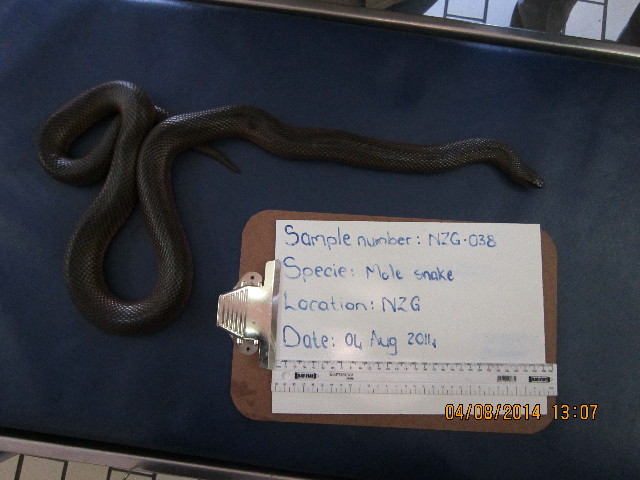 Sample number: NZG-038
Specie: Mole snake
Location: NZG
Date: 04 Aug 2014
04/08/2014 13:07